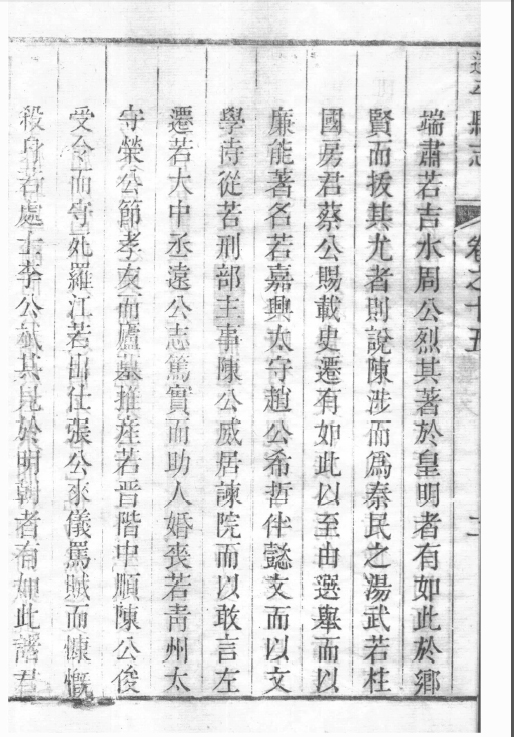 縣志 卷之十五 二
端肅若吉水周公烈其著於皇明者有如此於鄉
賢而拔其尤者則說陳涉而爲秦民之湯武若桂
國房君蔡公賜載史遷有如此以至由選舉而以
廉能著名若嘉興太守趙公希哲伴懿文而以文
學侍從若刑部主事陳公威居諫院而以敢言左
遷若大中丞遠公志篤實而助人婚喪若青州太
守榮公節孝友而廬墓推産若晋階中順陳公俊
受命而守死羅江若出仕張公來儀罵賊而慷慨
殺身若處士李公斌其見於明朝者有如此諸君